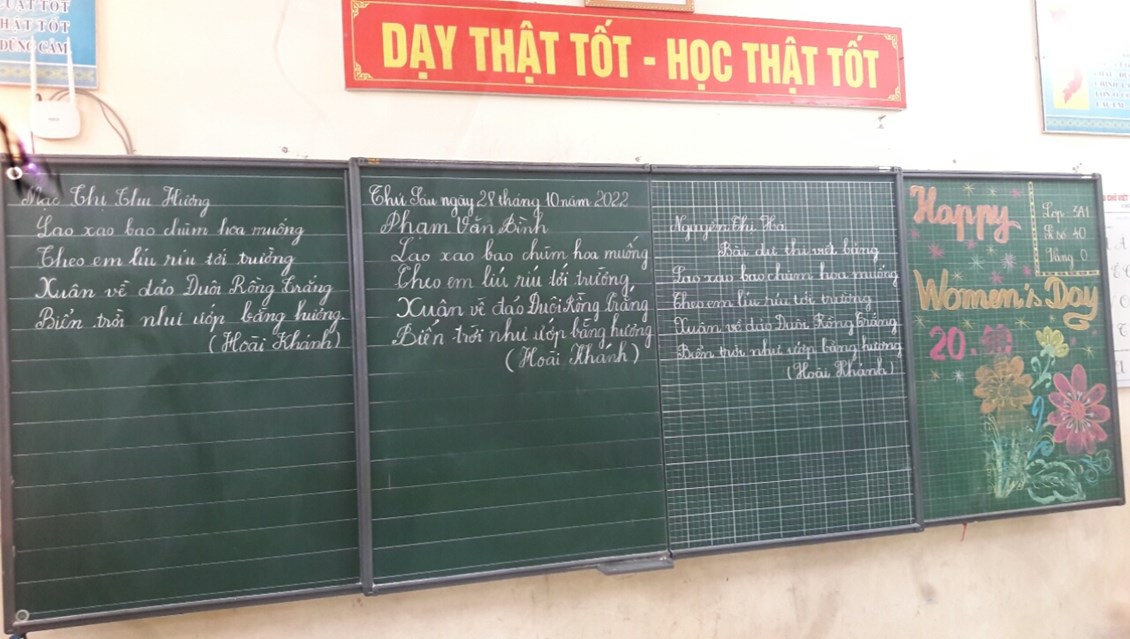 UẬT TỐT
THẬT TỐT
DŨNG CẢM
DẠY THẬT TỐT - HỌC THẬT TỐT
Thị Thu Hương
Lao xao bao chùm hoa muống
Theo em líu ríu tới trường
Xuân về đảo Duôi Rồng trắng
Biển trời như ướp bằng hương
(Hoài Khánh)
Thứ Sáu ngày 28 tháng 10 năm 2022
Phạm Văn Bình
Lao xao bao chùm hoa muống
Theo em líu ríu tới trường
Xuân về đảo Duôi Rồng trắng
Biển trời như ướp bằng hương
(Hoài Khánh)
Nguyễn Thị Hà
Bài dự thi viết bảng
Lao xao bao chùm hoa muống
Theo em líu ríu tới trường
Xuân về đảo Duôi Rồng trắng
Biển trời như ướp bằng hương
(Hoài Khánh)
Happy
Women's Day
20.10
Lớp 3A1
Sĩ số 40
Vắng 0